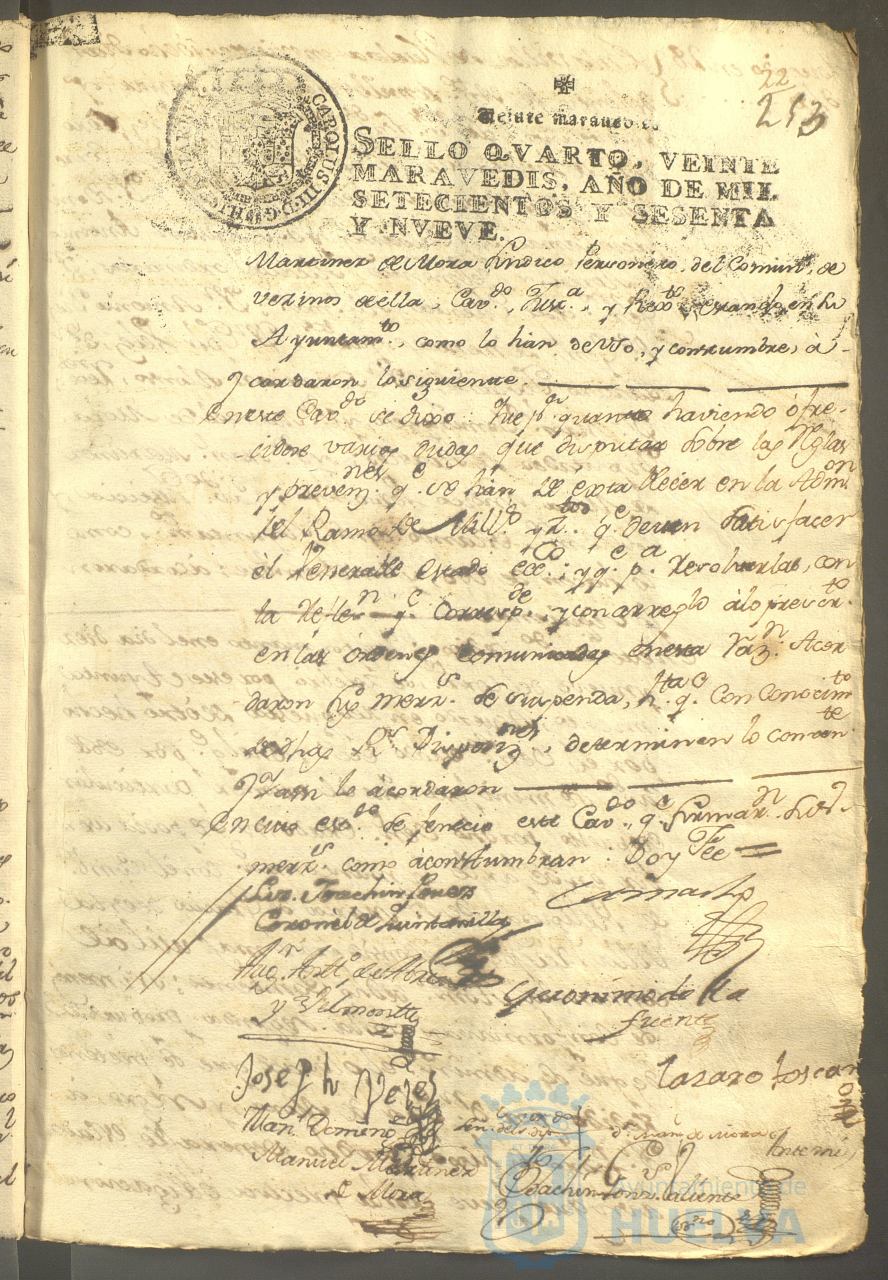 22
213
CAROLUS III D G HISPANIAR
Veinte maraved
SELLO QVARTO, VEINTE
MARAVEDIS, AÑO DE MIL
SETECIENTOS Y SESENTA
Y NVEVE.
Martinez de Mora Sindico Personero, del Comun, de
vezinos de ella, Cavdo, Justa, y Rexto estando en su
Ayuntamto, como lo han de vso, y constumbre, à-
cordaron lo siguiente
En este Cavdo se dixo: que pr quanto haviendo ofre-
cidose varias dudas que disputar sobre las Reglas
y prevennes qe se han de establecer en la Admon
del Ramo de Mills qe deven satisfacer
el Venerable estado eccco; y qe pa resolverlas, con
la y corresp.de, y con arreglo à lo prevto
en las ôrdenes comunicadas en esta razn: Acor
daron sus merzs. se suspenda, hta qe con conocimto
de dhas Rs Disposnes, determinen lo conven.te
y assi lo acordaron
En cuio estdo se fenecio este Cavdo, qe firmarn sus
merzs. como acostumbran: Doy Fee
Liz. Joachin
Coronel de Quintanilla
Camacho
Agn. Antto. de Abreu
y Vilmontte
Geronimo de la
fuente
Joseph Velez
Lazaro toscano
Manl Domengo
dn Juan de Mora
Manuel Martinez
de Mora
Ante mi
Joachin Gonz. Caliente
Ayuntamiento de
HUELVA